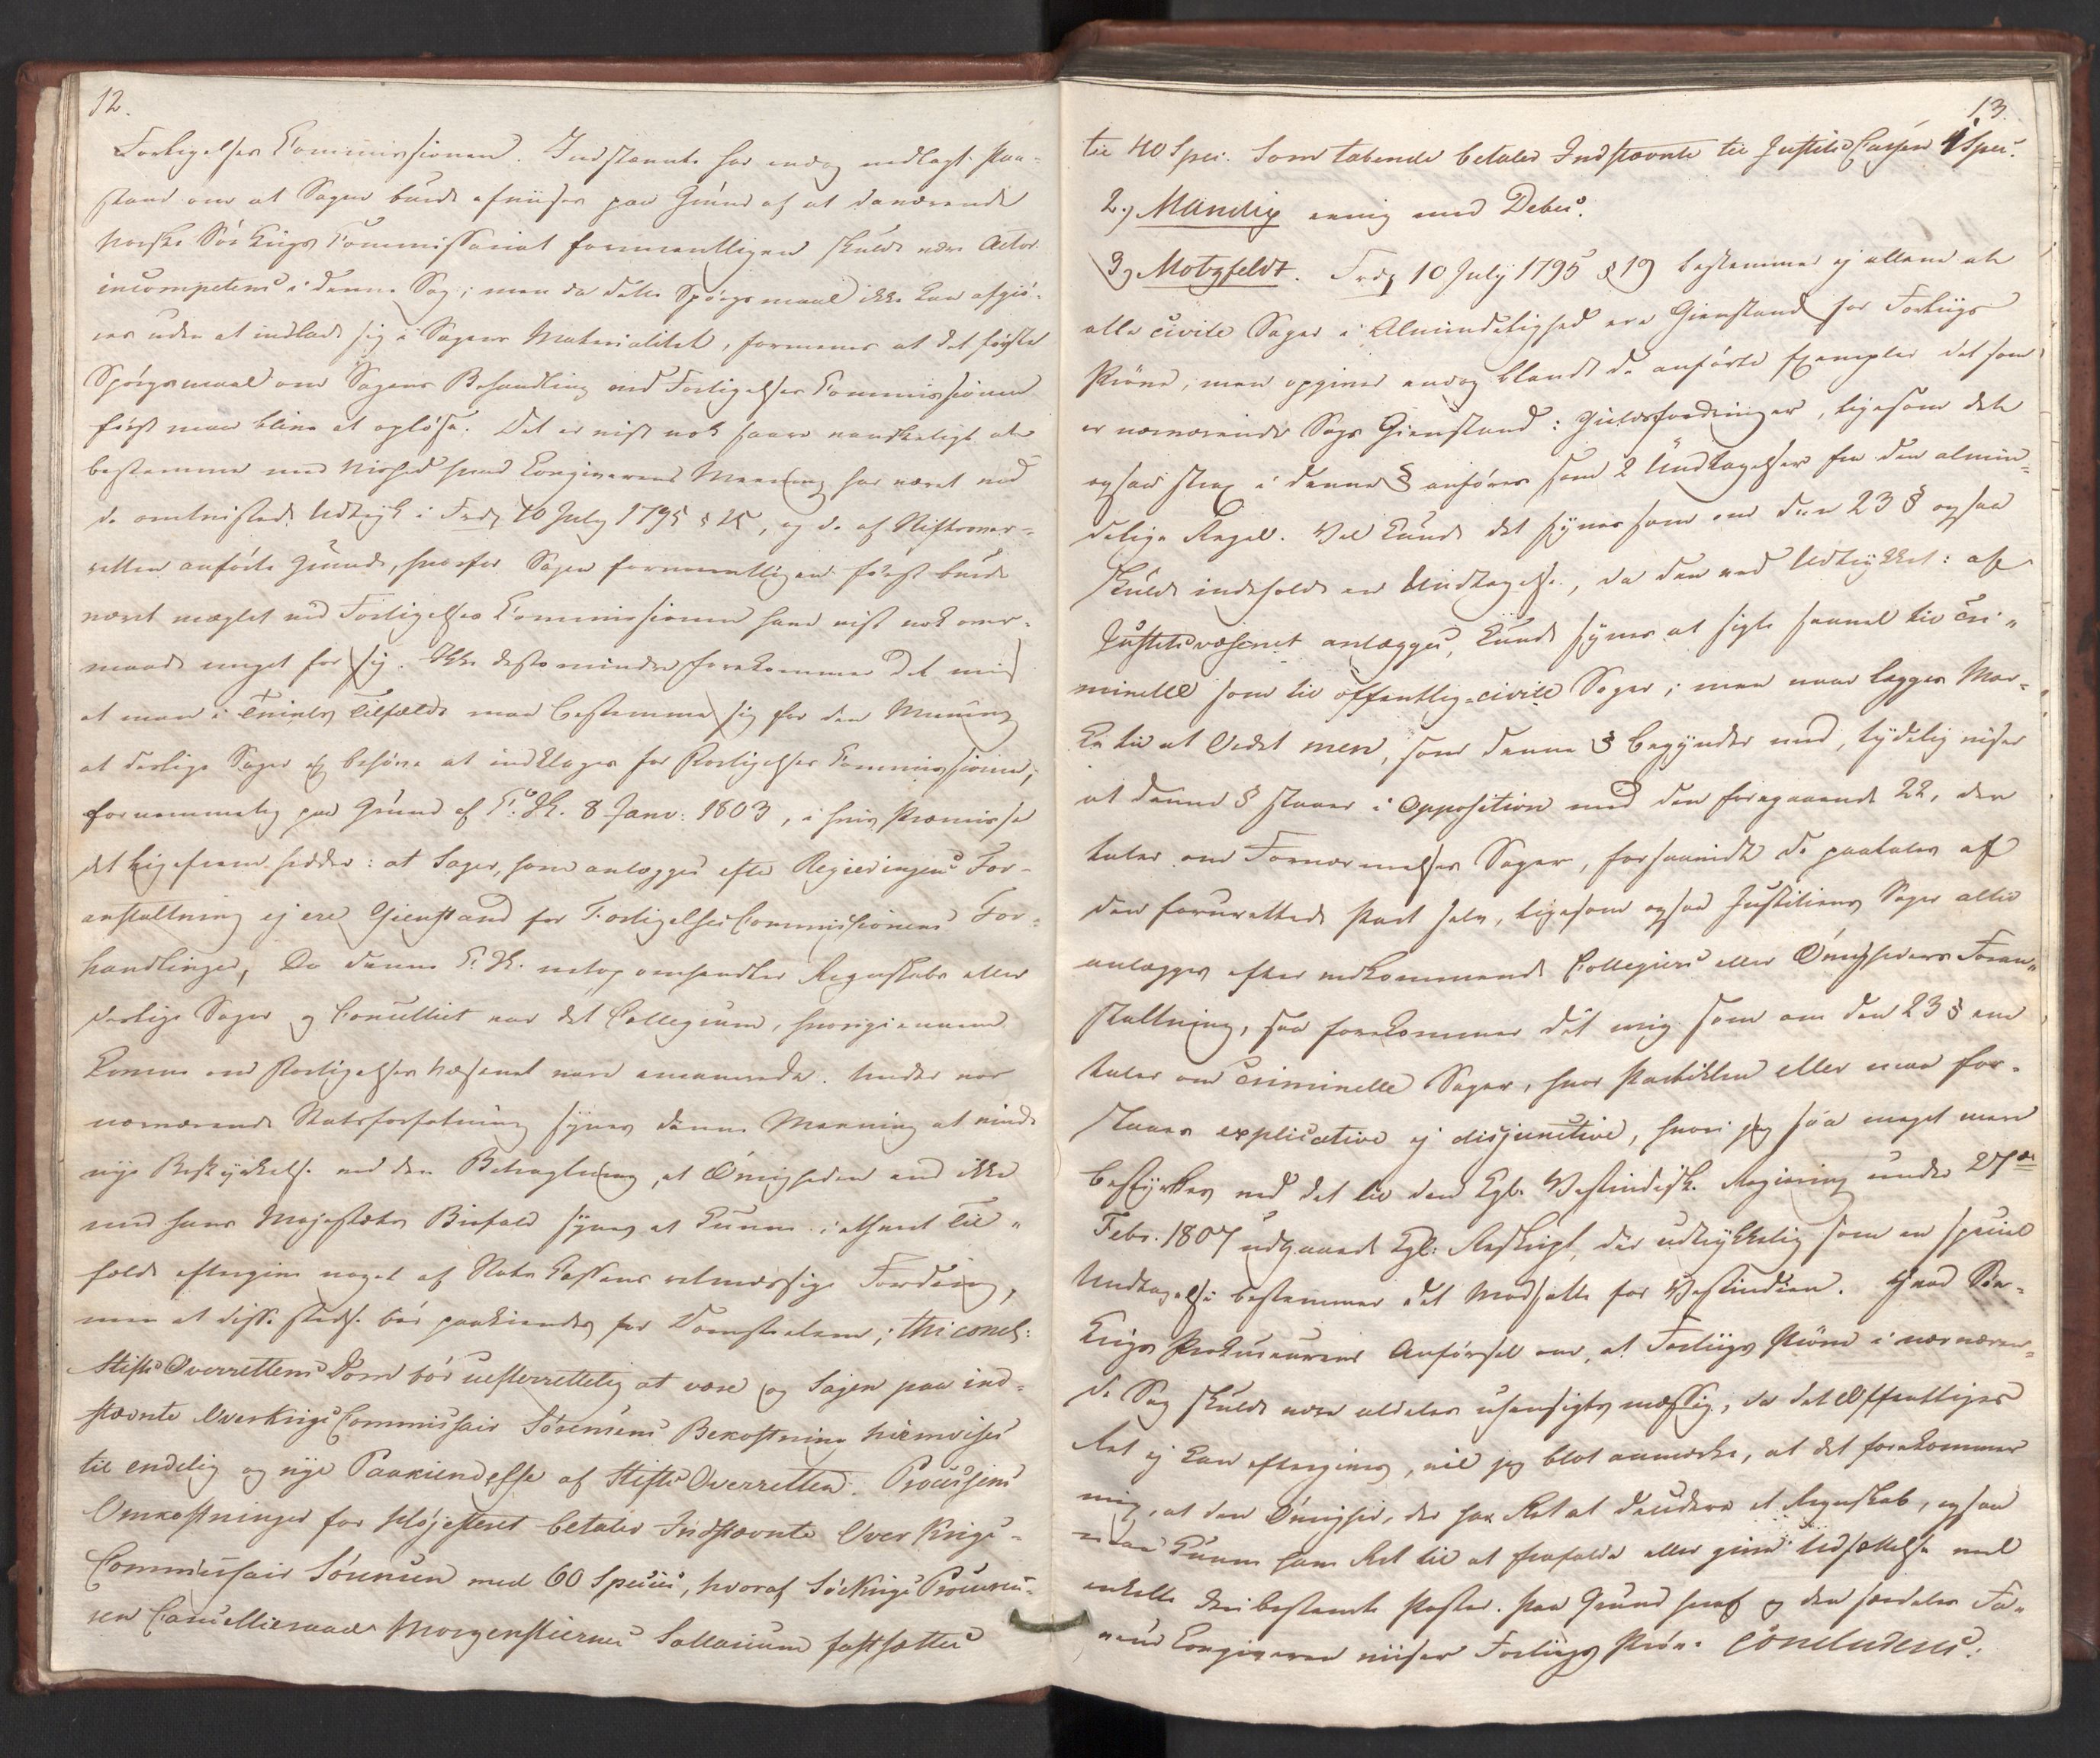 12.
Forligelses Commissionen. Indstævnte har endog nedlagt Paa-
stand om at Sagen burde afviises paa Grund af at daværende
Norske Søe Krigs Commissariat formeentligen skulde være Actor
incompetens i denne Sag; men da dette Spørgsmaal ikke kan afgiø-
res uden at indlade sig i Sagens Materialitet, formenes at det første
Spørgsmaal om Sagens Behandling ved Forligelses Commissionen
først maa blive at opløse. Det er vist nok saare vanskeligt at
bestemme med Vished hvad Lovgiverens Meening har været ved
de omtvistede Udtryk i Frdg 10 July 1795 § 25, og de af Stiftsover-
retten anførte Grunde, hvorfor Sagen formeentligen først burde
været mæglet ved Forligelses Commissionen have vist nok over-
maade meget for sig. Ikke destomindre forekommer det mig
at man i Tvivls Tilfælde maa bestemme sig for den Mening
at deslige Sager ej behøve at indklages for Forligelses Commissionen,
fornemmelig paa Grund af C. Sk. 8 Janv: 1803, i hvis Præmisser
det ligefrem hedder: at Sager, som anlægges efter Regieringens For-
anstaltning ej ere Gienstand for Forligelses Commissionens For-
handlinger, Da denne C. Sk. netop omhandler Regnskabs eller
deslige Sager og Cancelliet var det Collegium, hvorigiennem
Lovene om Forligelses Væsenet vare emanerede. Under vor
nærværende Statsforfatning synes denne Meening at vinde
nye Bestyrkelse ved den Betragtning, at Øvrigheden end ikke
med hans Majestæts Bifald synes at kunne i ethvert Til-
fælde eftergive noget af Stats Cassens retmæssige Fordring,
men at disse stedse bør paakiendes for Domstolene; thi concl:
Stifts Overrettens Dom bør uefterrettelig at være og Sagen paa ind-
stævnte OverKrigsCommissair Sørensens Bekostning hiemvises
til endelig og nye Paakiendelse af Stifts Overretten. Processens
Omkostninger for Højesteret betaler Indstævnte Over Krigs-
Commissair Sørensen med 60 Species, hvoraf SøeKrigs Procureu-
ren Cancellieraad Morgenstiernes Sallarium fastsættes
13.
til 40 Spec. Som tabende betaler Indstævnte til Justits Cassen 1 Spec.
2.) Mandix eenig med Debes.
3) Motzfeldt. Frdg 10 July 1795 § 19 bestemmer ej allene at
alle civile Sager i Almindelighed ere Gienstand for Forligs
Prøve, men opgiver endog blandt de anførte Exempler det som
er nærværende Sags Gienstand: Gieldsfordringer, ligesom det
ogsaa strax i denne § anføres som 2 Undtagelser fra den almin-
delige Regel. Vel kunde det synes som om den 23 § ogsaa
skulde indeholde en Undtagelse, da den ved Udtrykket: af
Justitsvæsenet anlægges, kunde synes at sigte saavel til cri-
minelle som til offentlig-civile Sager; men naar lægges Mær-
ke til at Ordet men, som denne § begynder med, tydelig viser
at denne § staaer i Opposition med den foregaaende 22, der
taler om Fornærmelses Sager, forsaavidt de paatales af
den forurettede Part selv, ligesom ogsaa Justitiens Sager altid
anlægges efter vedkommende Collegiers eller Øvrigheders Foran-
staltning, saa forekommer det mig som om den 23 § ene
taler om criminelle Sager, hvor Partiklen eller maa for-
staaes explicative ej disjunctive, hvori jeg saa meget mere
bestyrkes ved det til den Kgl. Vestindiske Regiering under 27de
Febr. 1807 udgaaede Kgl: Reskript, der udtrykkelig som en speciel
Undtagelse bestemmer det Modsatte for Vestindien. Hvad Søe-
Krigs Prokureurens Anførsel om, at Forligs Prøve i nærværen-
de Sag skulde være aldeles uhensigtsmæssig, da det Offentliges
Ret ej kan eftergives, vil jeg blot anmærke, at det forekommer
mig, at den Øvrighed, der har Ret at decidere et Regnskab, ogsaa
maa kunne have Ret til at frafalde eller give Udsættelse med
enkelte deri bestemte Poster. Paa Grund heraf og den særdeles Fa-
veur Lovgiveren viiser Forligs Prøve concluderes: